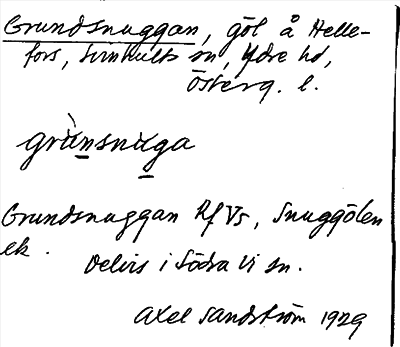 Grundsnuggan, göl å Helle-
fors, Svinhults sn, Ydre hd,
Österg. l.
grùnsnuga
Grundsnuggan Rf V5, Snuggölen
ek.
Delvis i Södra Vi sn.
Axel Sandström 1929